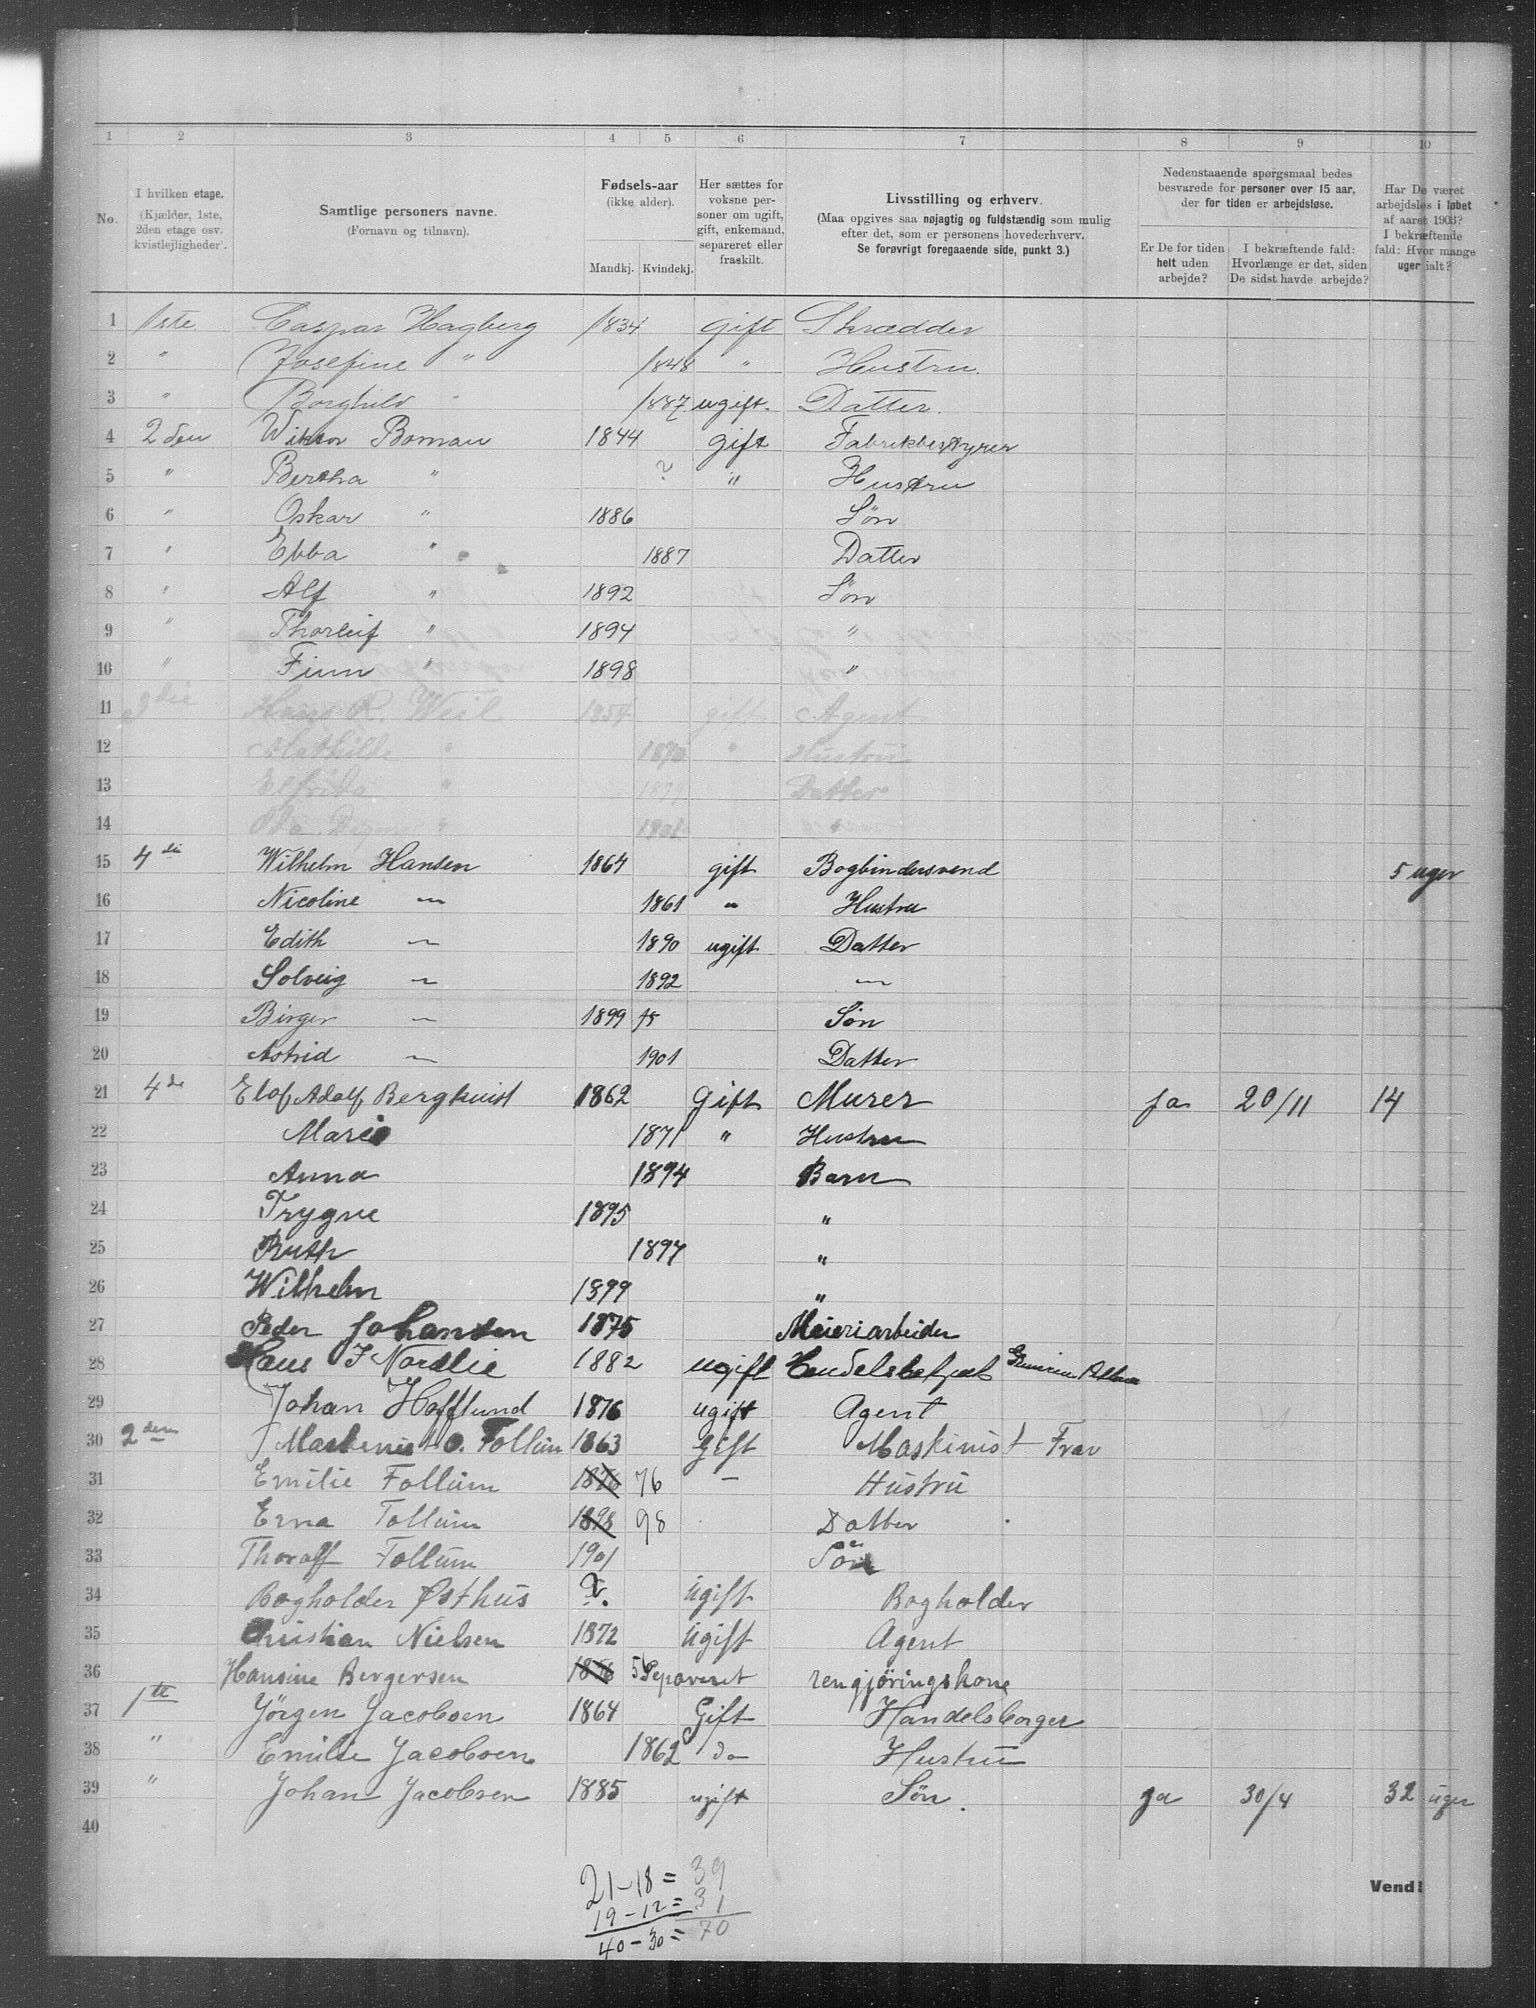 1 2 3 4 5 6 7 8 9 10
No.
I hvilken etage.
(Kjælder, 1ste,
2den etage osv.
kvistlejligheder).
Samtlige personers navne.
(Fornavn og tilnavn).
Fødsels-aar
(ikke alder).
Mandkj. Kvindekj.
Her sættes for
voksne per-
soner om ugift,
gift, enkemand,
separeret eller
fraskilt.
Livsstilling og erhverv.
(Maa opgives saa nøjagtig og fuldstændig som mulig
efter det, som er personens hovederhverv.
Se forøvrigt foregaaende side, punkt 3.)
Nedenstaaende spørgsmaal bedes
besvarede for personer over 15 aar,
der for tiden er arbejdsløse.
Er De for tiden
helt uden
arbejde?
I bekræftende fald:
Hvorlænge er det, siden
De sidst havde arbejde?
Har De været
arbejdsløs i løbet
af aaret 1903?
I bekræftende
fald: Hvor mange
uger ialt?
1 1ste Caspar Hagberg 1834 gift Skrædder
2 " Josefine " 1848 " Hustru.
3 " Borghild " 1887 ugift. Datter.
4 2den Wiktor Boman 1844 gift Fabrikbestyrer
5 " Bertha " ? " Hustru
6 " Oskar " 1886 Søn
7 " Ebba " 1887 Datter
8 " Alf " 1892 Søn
9 " Thorleif " 1894 "
10 " Finn " 1898 "
11 3die Hans R. Weil gift Agent
12 Mathilde " 1870 " Hustru
13 Elfrida " Datter
14 " 1901 "
15 4die Wilhelm Hansen 1864 gift Bogbindersvend 5 uger
16 Nicoline — 1861 " Hustru
17 Edith — 1890 ugift Datter
18 Solveig — 1892 —
19 Birger — 1899 Søn
20 Astrid — 1901 Datter
21 4de Elof Adolf Berghuist 1862 Gift Murer ja 20/11 14
22 Marie 1871 " Hustru
23 Anna 1894 Barn
24 Trygve 1895 "
25 Ruth 1897 "
26 Wilhelm 1899 "
27 Peder Johansen 1875 Meieriarbeider
28 Haus J Nordlie 1882 ugift Handelsbetjent
29 Johan Hofflund 1876 ugift Agent
30 2den Maskenist O. Follum 1863 gift Maskinist Frav
31 Emilie Follum 1876 76 — Hustru
32 Erna Follum 1898 98 Datter
33 Thoralf Follum 1901 Søn
34 Bogholder Østhus ?. Ugift Bogholder
35 Christian Nielsen 1872 Ugift Agent
36 Hansine Bergersen Separeret rengjøringskone
37 1ste Jørgen Jacobsen 1864 Gift Handelsborger
38 " Emilie Jacobsen 1862 do Hustru
39 " Johan Jacobsen 1885 ugift Søn. ja 30/4 32 uger
40
21-18=39
19-12=31
40-30=70
Vend!